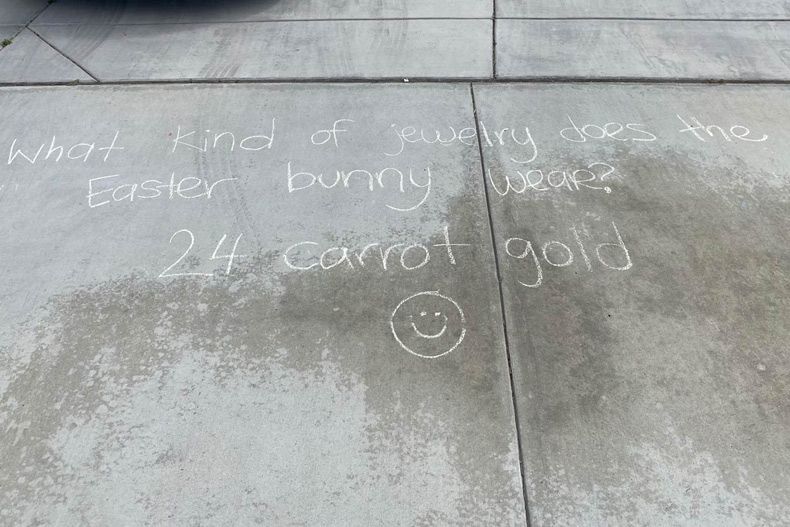 What kind of jewelry does the
Easter bunny wear?
24 carrot gold